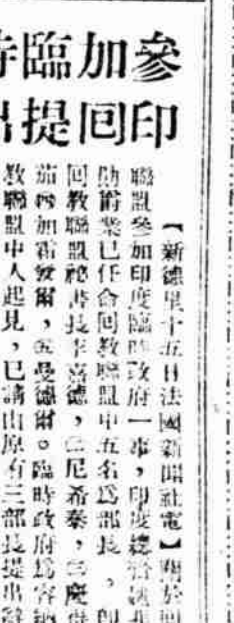 參加臨時
印回提出
【新德里十五日法國新聞社電】關於回
聯盟參加印度臨時政府一事,印度總督
勛爵業已任命回教聯盟中五名爲部長,卽
回教聯盟祕書長李嘉德,㊁尼希泰,㊂
茄㊃加霜發爾,㊄曼德爾。臨時政府爲容納
教聯盟中人起見,已請由原有三部長提出辭